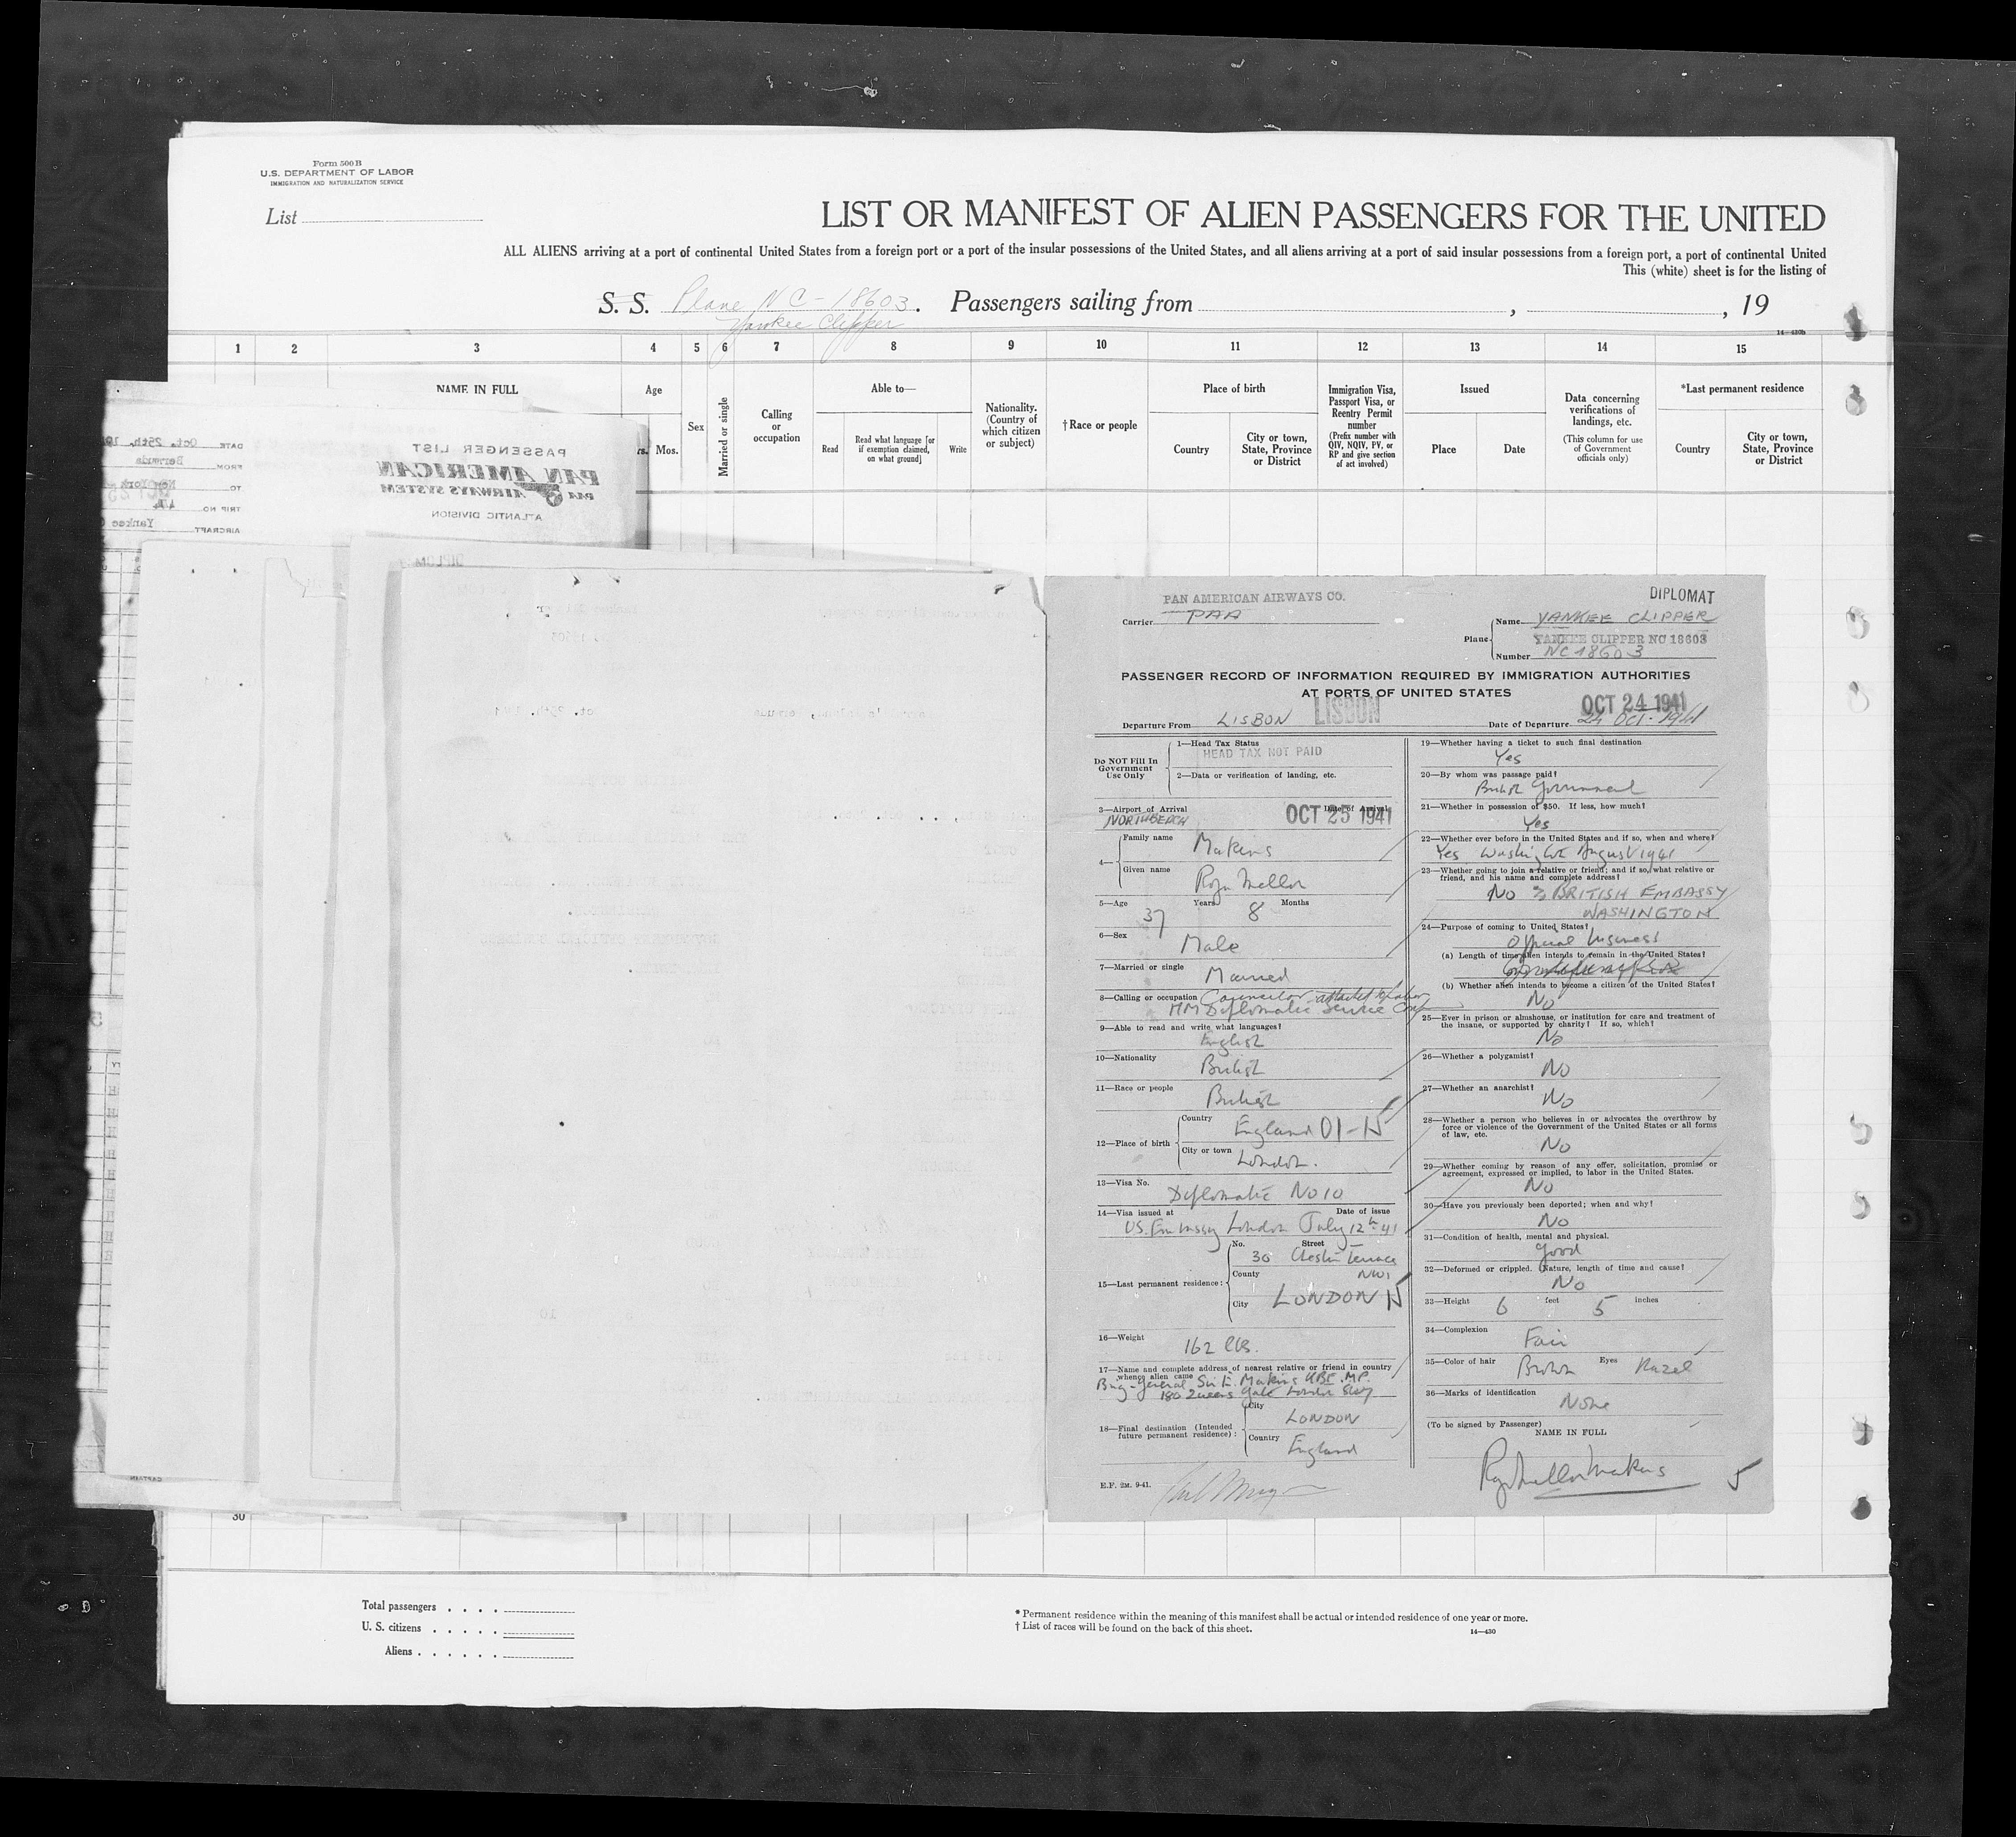 Form 500 B
U.S. DEPARTMENT OF LABOR
IMMIGRATION AND NATURALIZATION SERVICE
List
LIST OR MANIFEST OF ALIEN PASSENGERS FOR THE UNITED
ALL ALIENS arriving at a port of continental United States from a foreign port or a port of the insular possessions of the United States, and all aliens arriving at a port of said insular possessions from a foreign port, a port of continental United
This (white) sheet is for the listing of
S. S. Plane NC-18603. Passengers sailing from , , 19
Yankee Clipper
14—430b
1 2 3 4 5 6 7 8 9 10 11 12 13 14 15
NAME IN FULL
Age
Mos.
Sex
Married or single
Calling or occupation
Able to—
Read
Read what language [or if exemption claimed, on what ground]
Write
Nationality. (Country of which citizen or subject)
†Race or people
Place of birth
Country
City or town, State, Province or District
Immigration Visa, Passport Visa, or Reentry Permit number
(Prefix number with QIV, NQIV, PV, or RP and give section of act involved)
Issued
Place
Date
Data concerning verifications of landings, etc.
(This column for use of Government officials only)
*Last permanent residence
Country
City or town, State, Province or District
PASSENGER LIST
PAN AMERICAN
PAA AIRWAYS SYSTEM
ATLANTIC DIVISION
DATE Oct. 25th, 19
FROM Bermuda
TO New York
TRIP NO.
AIRCRAFT Yankee
PAN AMERICAN AIRWAYS CO.
DIPLOMAT
Carrier PAA
Plane
Name YANKEE CLIPPER
YANKEE CLIPPER NC 18603
Number NC 18603
PASSENGER RECORD OF INFORMATION REQUIRED BY IMMIGRATION AUTHORITIES
AT PORTS OF UNITED STATES
OCT 24 1941
Departure From LISBON LISBON Date of Departure 24 Oct. 1941
Do NOT Fill In Government Use Only
1—Head Tax Status
HEAD TAX NOT PAID
2—Data or verification of landing, etc.
3—Airport of Arrival Date of Arrival
NORTHBEACH OCT 25 1941
4—
Family name Makins
Given name Roger Mellor
5—Age 37 Years 8 Months
6—Sex Male
7—Married or single Married
8—Calling or occupation Counselor attached to
HM Diplomatic Service
9—Able to read and write what languages?
English
10—Nationality British
11—Race or people British
12—Place of birth
Country England 01-15
City or town London.
13—Visa No. Diplomatic No 10
14—Visa issued at Date of issue
US. Embassy London July 12th 41
15—Last permanent residence:
No. Street
30 Chester Terrace
County NW1
City LONDON 15
16—Weight 162 lbs.
17—Name and complete address of nearest relative or friend in country whence alien came
Brig-General Sir E. Makins KBE. MP.
180 Queens Gate London SW7
18—Final destination (Intended future permanent residence):
City LONDON
Country England
E.F. 2M. 9-41.
19—Whether having a ticket to such final destination
Yes
20—By whom was passage paid?
British Government
21—Whether in possession of $50. If less, how much?
Yes
22—Whether ever before in the United States and if so, when and where?
Yes Washington August 1941
23—Whether going to join a relative or friend; and if so, what relative or friend, and his name and complete address?
No % BRITISH EMBASSY
WASHINGTON
24—Purpose of coming to United States?
Official business
(a) Length of time alien intends to remain in the United States?
(b) Whether alien intends to become a citizen of the United States?
No
25—Ever in prison or almshouse, or institution for care and treatment of the insane, or supported by charity? If so, which?
No
26—Whether a polygamist?
No
27—Whether an anarchist?
No
28—Whether a person who believes in or advocates the overthrow by force or violence of the Government of the United States or all forms of law, etc.
No
29—Whether coming by reason of any offer, solicitation, promise or agreement, expressed or implied, to labor in the United States.
No
30—Have you previously been deported; when and why?
No
31—Condition of health, mental and physical.
Good
32—Deformed or crippled. Nature, length of time and cause?
No
33—Height 6 feet 5 inches
34—Complexion Fair
35—Color of hair Brown Eyes Hazel
36—Marks of identification
None
(To be signed by Passenger)
NAME IN FULL
Roger Mellor Makins
5
30
Total passengers
U. S. citizens
Aliens
* Permanent residence within the meaning of this manifest shall be actual or intended residence of one year or more.
† List of races will be found on the back of this sheet.
14—430